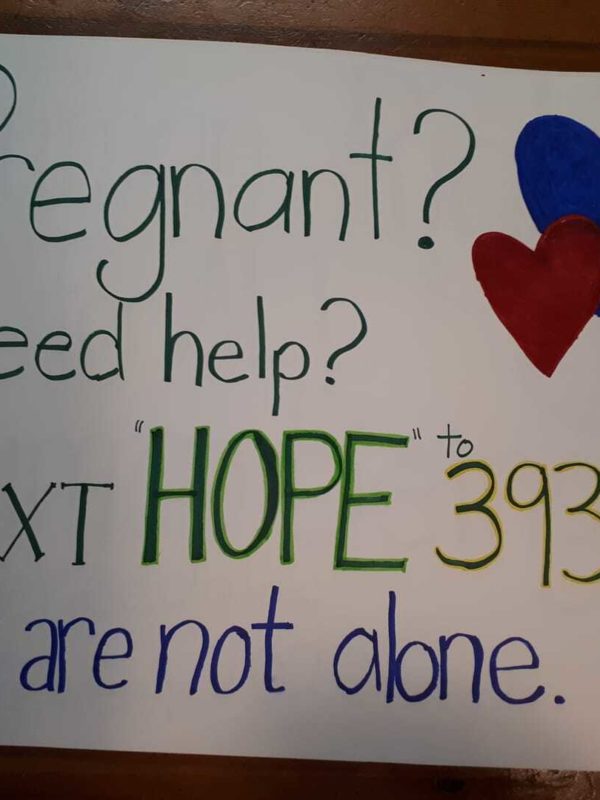 Pregnant?
eed help?
XT "HOPE" to 393
are not alone.